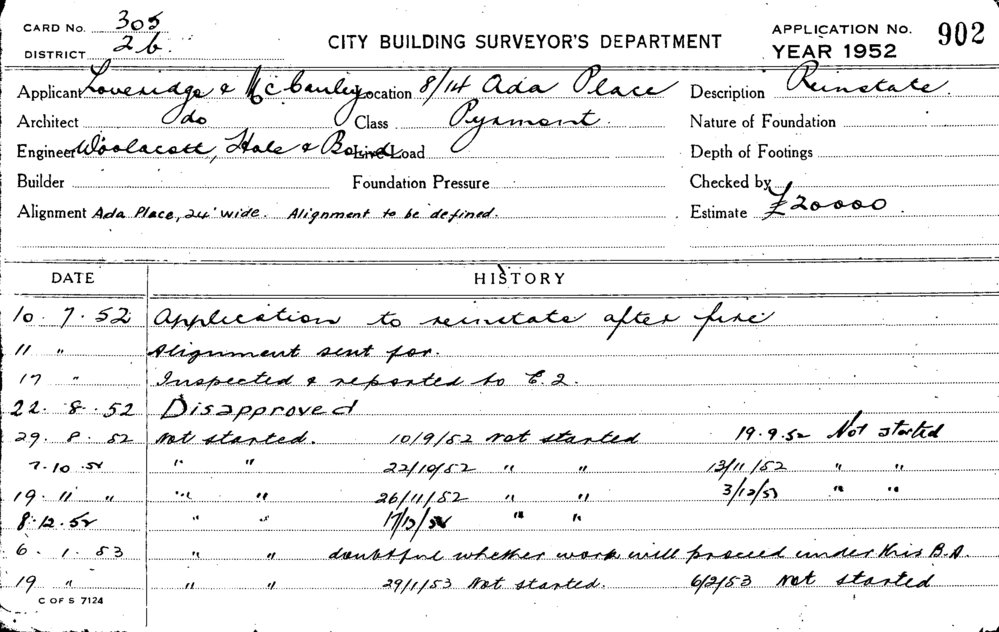 CARD No. 305
DISTRICT 2b.
CITY BUILDING SURVEYOR'S DEPARTMENT
APPLICATION No. 902
YEAR 1952
Applicant Loveridge & McCauley Location 8/14 Ada Place Description Reinstate.
Architect do Class Pyrmont. Nature of Foundation
Engineer Woolacott, Hale & Bond Live Load Depth of Footings
Builder Foundation Pressure Checked by
Alignment Ada Place, 24' wide. Alignment to be defined. Estimate £20000.
DATE HISTORY
10. 7. 52 Application to reinstate after fire
11 " Alignment sent for.
17 " Inspected & reported to C.2.
22. 8. 52 Disapproved
29. 8. 52 Not started. 10/9/52 not started 19.9.52 Not started
7.10.52 " " 22/10/52 " " 13/11/52 " "
19. 11 " " " 26/11/52 " " 3/12/52 " "
8.12.52 " " 17/12/52 " "
6. 1. 53 " " doubtful whether work will proceed under this B.A.
19 " " " 29/1/53 Not started. 6/2/53 Not started
C OF S 7124